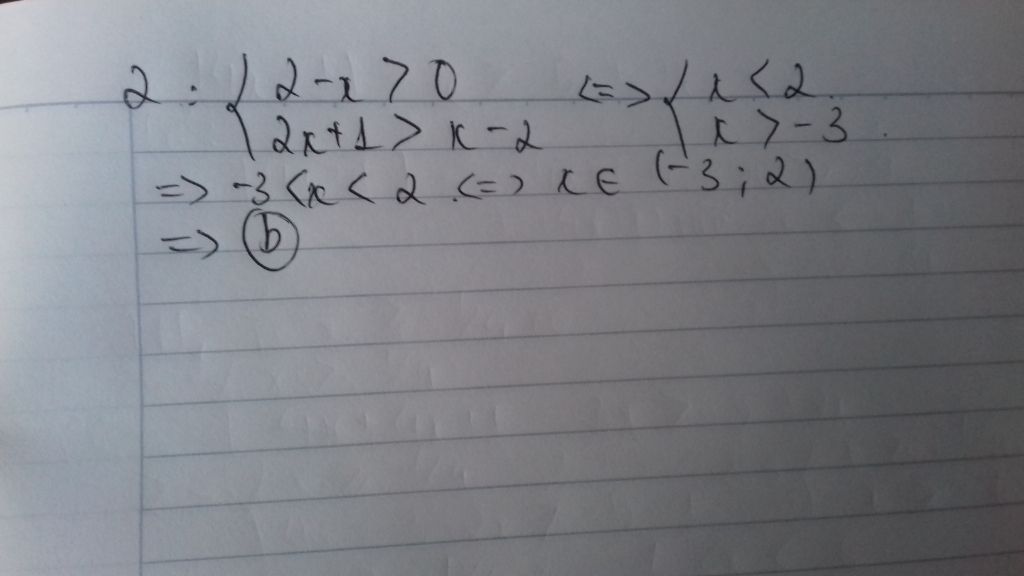 2 : { 2-x > 0 <=> { x < 2.
2x+1 > x - 2 x > -3.
=> -3 < x < 2 <=> x ∈ (-3 ; 2)
=> b